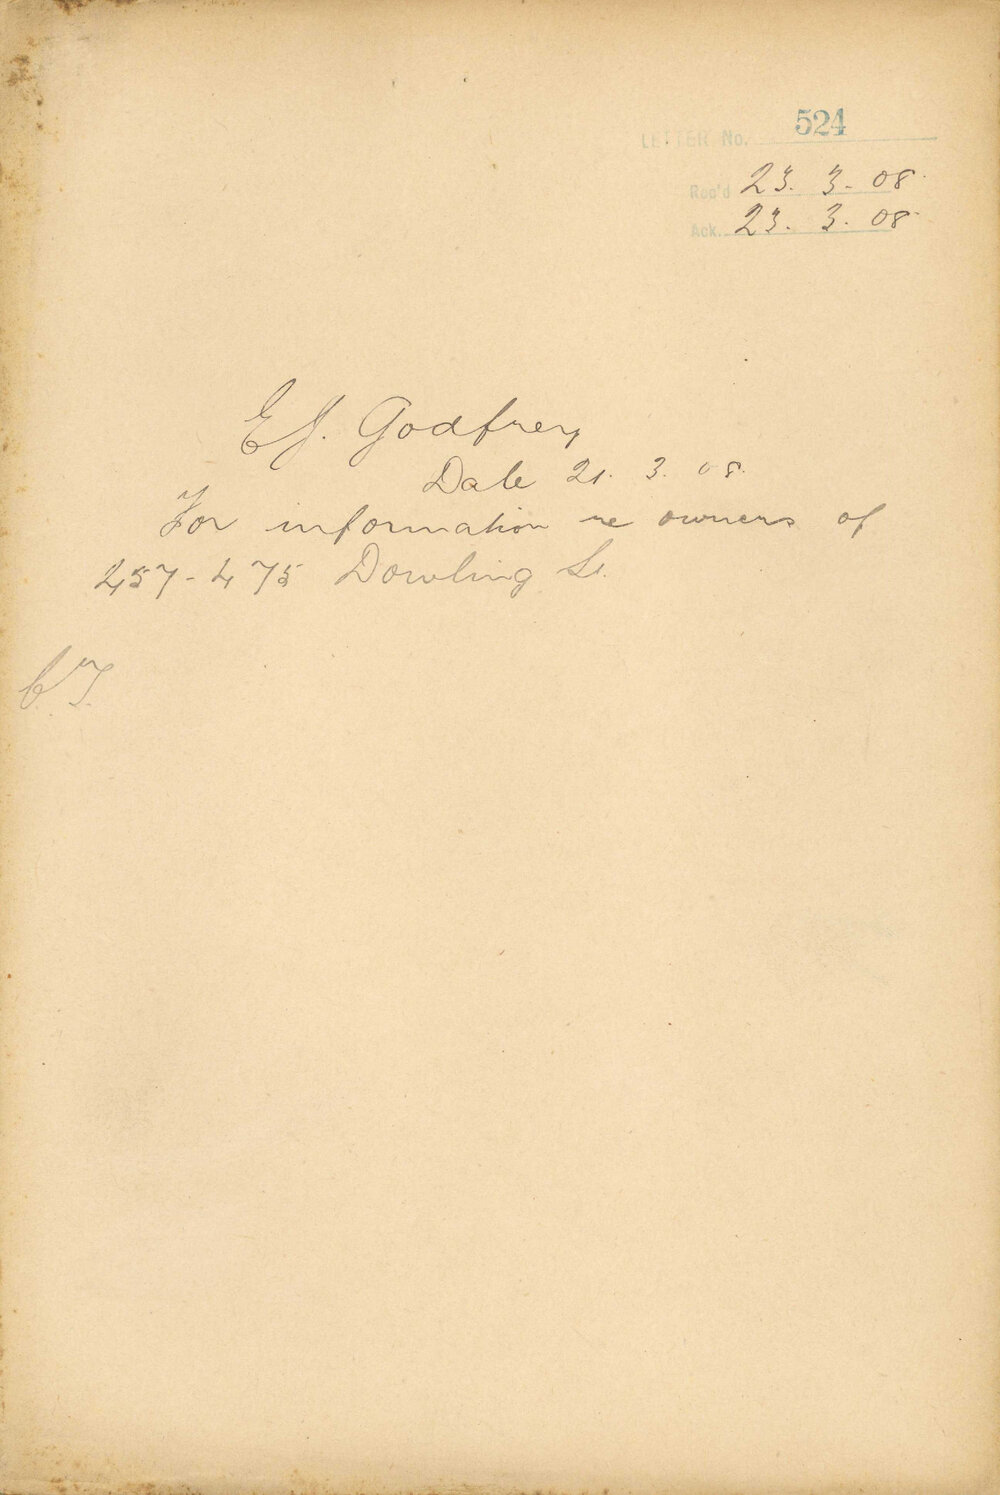 LETTER No. 524
Rec'd 23. 3. 08.
Ack. 23. 3. 08.
E J. Godfrey
Date 21. 3. 08.
For information re owners of
457-475 Dowling St.
C.T.